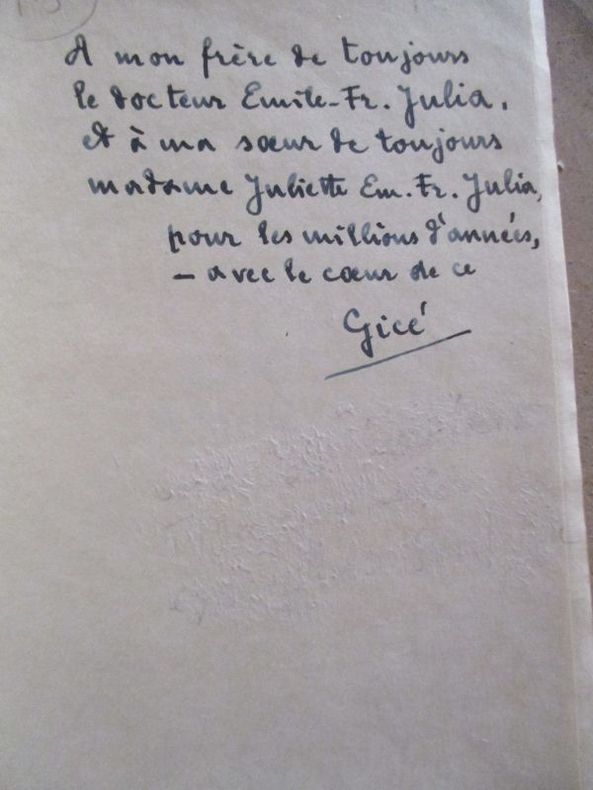 A mon frère de toujours
le docteur Emile-Fr. Julia,
et à ma sœur de toujours
madame Juliette Em. Fr. Julia,
pour les millions d'années,
— avec le cœur de ce
Gicé